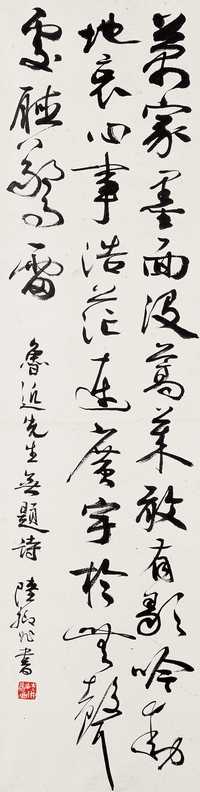 萬家墨面没蒿萊敢有歌吟動
地哀心事浩茫連廣宇於無聲
處聽驚雷
魯迅先生無題詩 陸抑非書